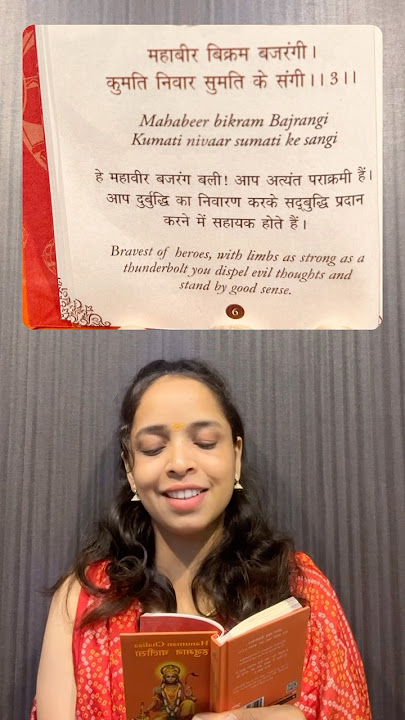 महाबीर बिक्रम बजरंगी।
कुमति निवार सुमति के संगी।।3।।
Mahabeer bikram Bajrangi
Kumati nivaar sumati ke sangi
हे महावीर बजरंग बली! आप अत्यंत पराक्रमी हैं।
आप दुर्बुद्धि का निवारण करके सद्बुद्धि प्रदान
करने में सहायक होते हैं।
Bravest of heroes, with limbs as strong as a
thunderbolt you dispel evil thoughts and
stand by good sense.
6
Hanuman Chalisa
हनुमान चालीसा